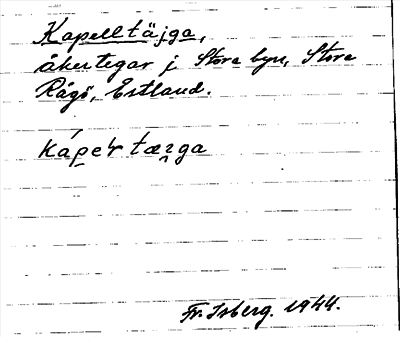 Kapelltäjga,
åkertegar j Stora byn, Stora
Rågö, Estland.
Fr. Isberg. 1944.